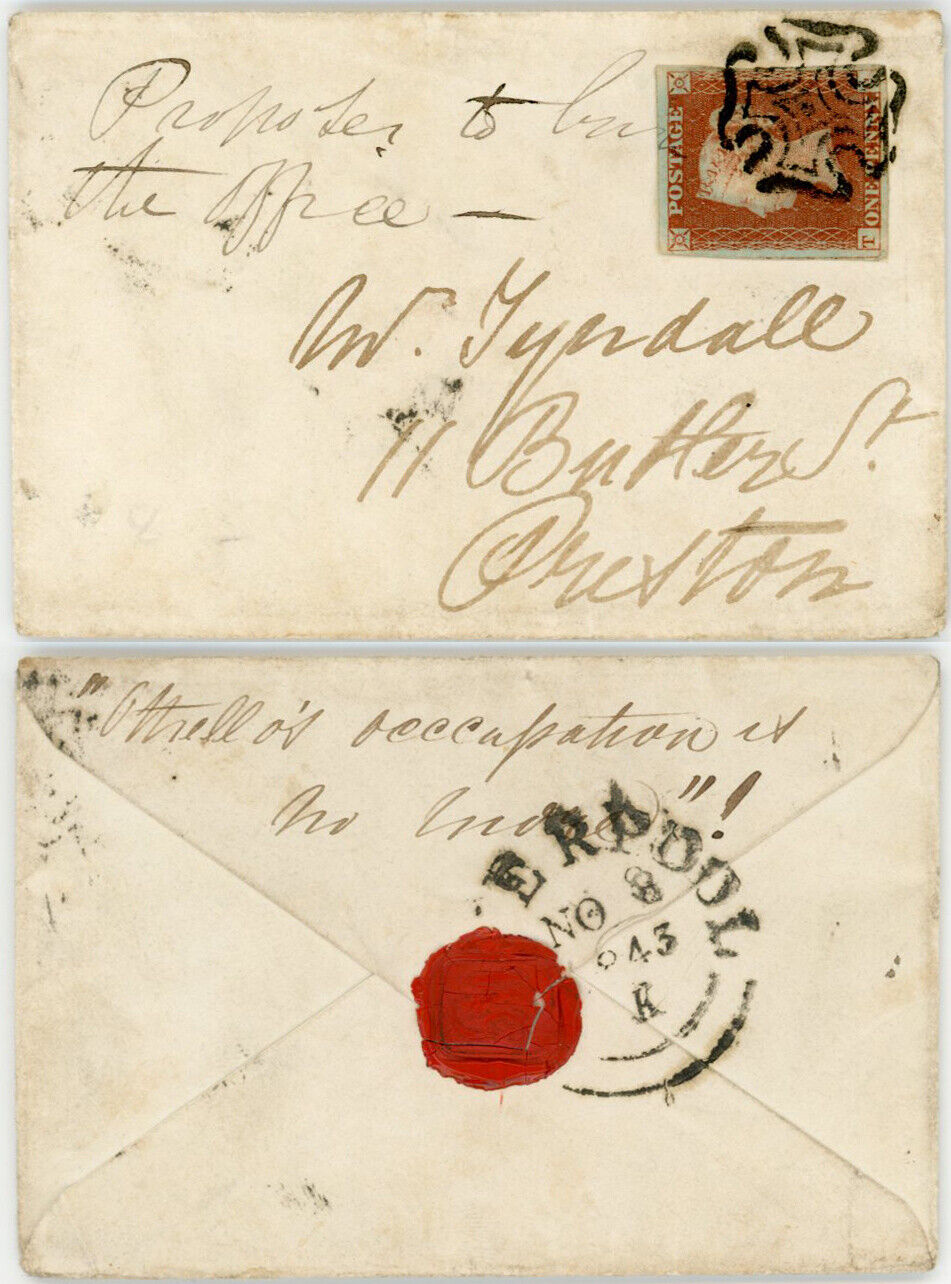 Proposes to buy
the office —
POSTAGE
ONE PENNY
T
Mr. Tyndall
11 Butler St.
Preston
"Othello's occcupation is
no more"!
ERPOOL
NO 8
843
K